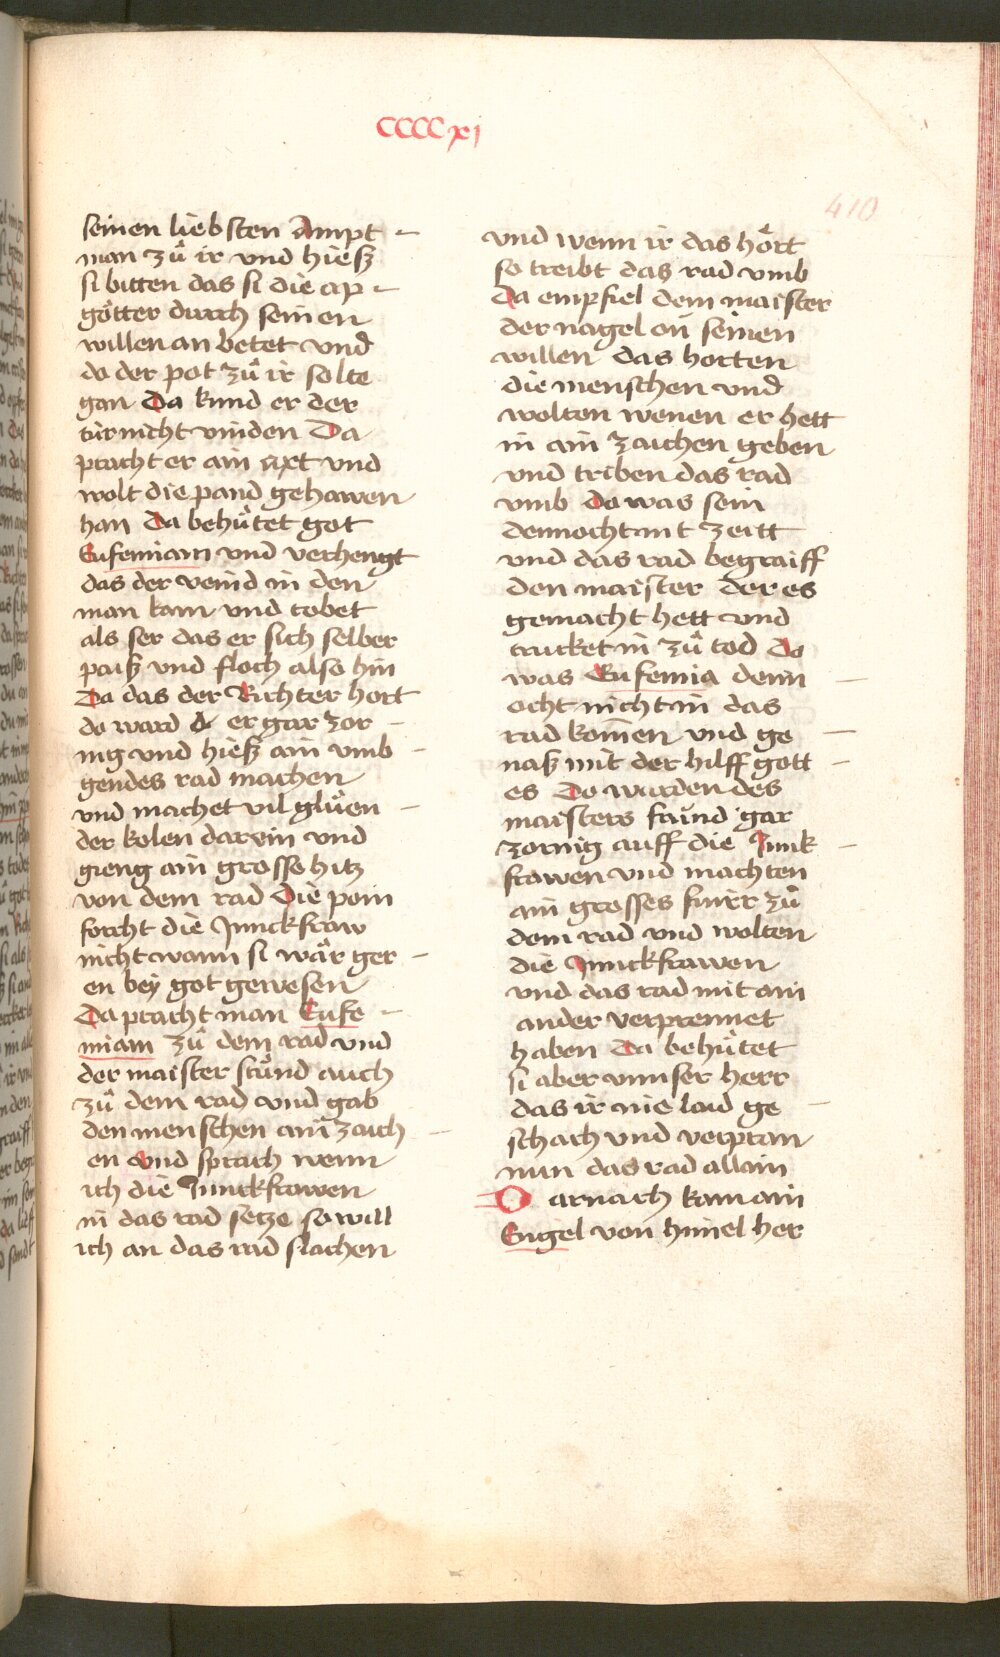 CCCCxj
410
seinen liebsten Ampt -
man zů ir vnd hiesz
si bitten das si die ap -
götter durch seinen
willen an betet vnd
do der pot zů ir solte
gan Da kund er der
tür nicht vinden Da
pracht er ain axt vnd
wolt die pand gehawen
han Da behůtet got
Eufemiam vnd verhengt
das der veind in den
man kam vnd tobet
als ser das er sich selber
paisz vnd floch also hin
Da das der Richter hort
do ward er gar zor -
nig vnd hiesz ain vmb -
gendes rad machen
vnd machet vil glüen -
der kolen darein vnd
gieng ain grosse hitz
von dem rad Die pein
forcht die Junckfraw
nicht wann si wär ger -
en bey got gewesen
Da pracht man Eufe -
miam zů dem rad vnd
der maister stůnd auch
zů dem rad vnd gab
den menschen ain zaich -
en vnd sprach wenn
ich die Junckfrawen
in das rad setze so will
ich an das rad slachen
vnd wenn ir das hört
so treibt das rad vmb
Da empfiel dem maister
der nagel on seinen
willen das horten
die menschen vnd
wolten wenen er hett
in ain zaichen geben
vnd triben das rad
vmb do was sein
dennocht nit zeitt
vnd das rad begraiff
den maister der es
gemacht hett vnd
trucket in zů tod Do
was Eufemia denn -
ocht nicht in das
rad kom̄en vnd ge -
nasz mit der hilff gott -
es Do wurden des
maisters fraind gar
zornig auff die Junk -
frawen vnd machten
ain grosses fewr zů
dem rad vnd wolten
die Junckfrawen
vnd das rad mit ain
ander verprennet
haben Da behůtet
si aber vnnser herr
das ir nie laid ge -
schach vnd verpran
nun das rad allain
Darnach kam ain
Engel von himel her